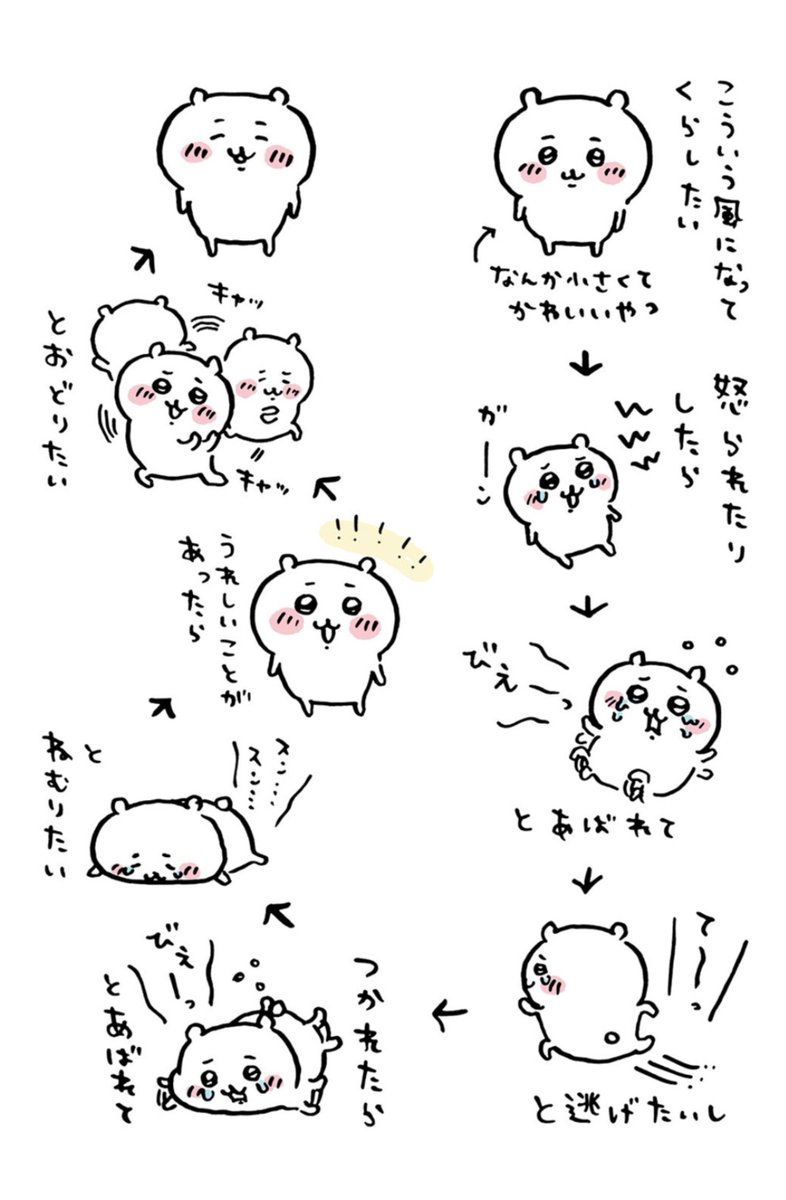 こういう風になって
くらしたい
なんか小さくて
かわいいやつ
怒られたり
したら
ガーン
びえっ
とあばれて
てーっ
と逃げたいし
つかれたら
びえーっ
とあばれて
スン……
スン……
と
ねむりたい
うれしいことが
あったら
キャッ
キャッ
とおどりたい